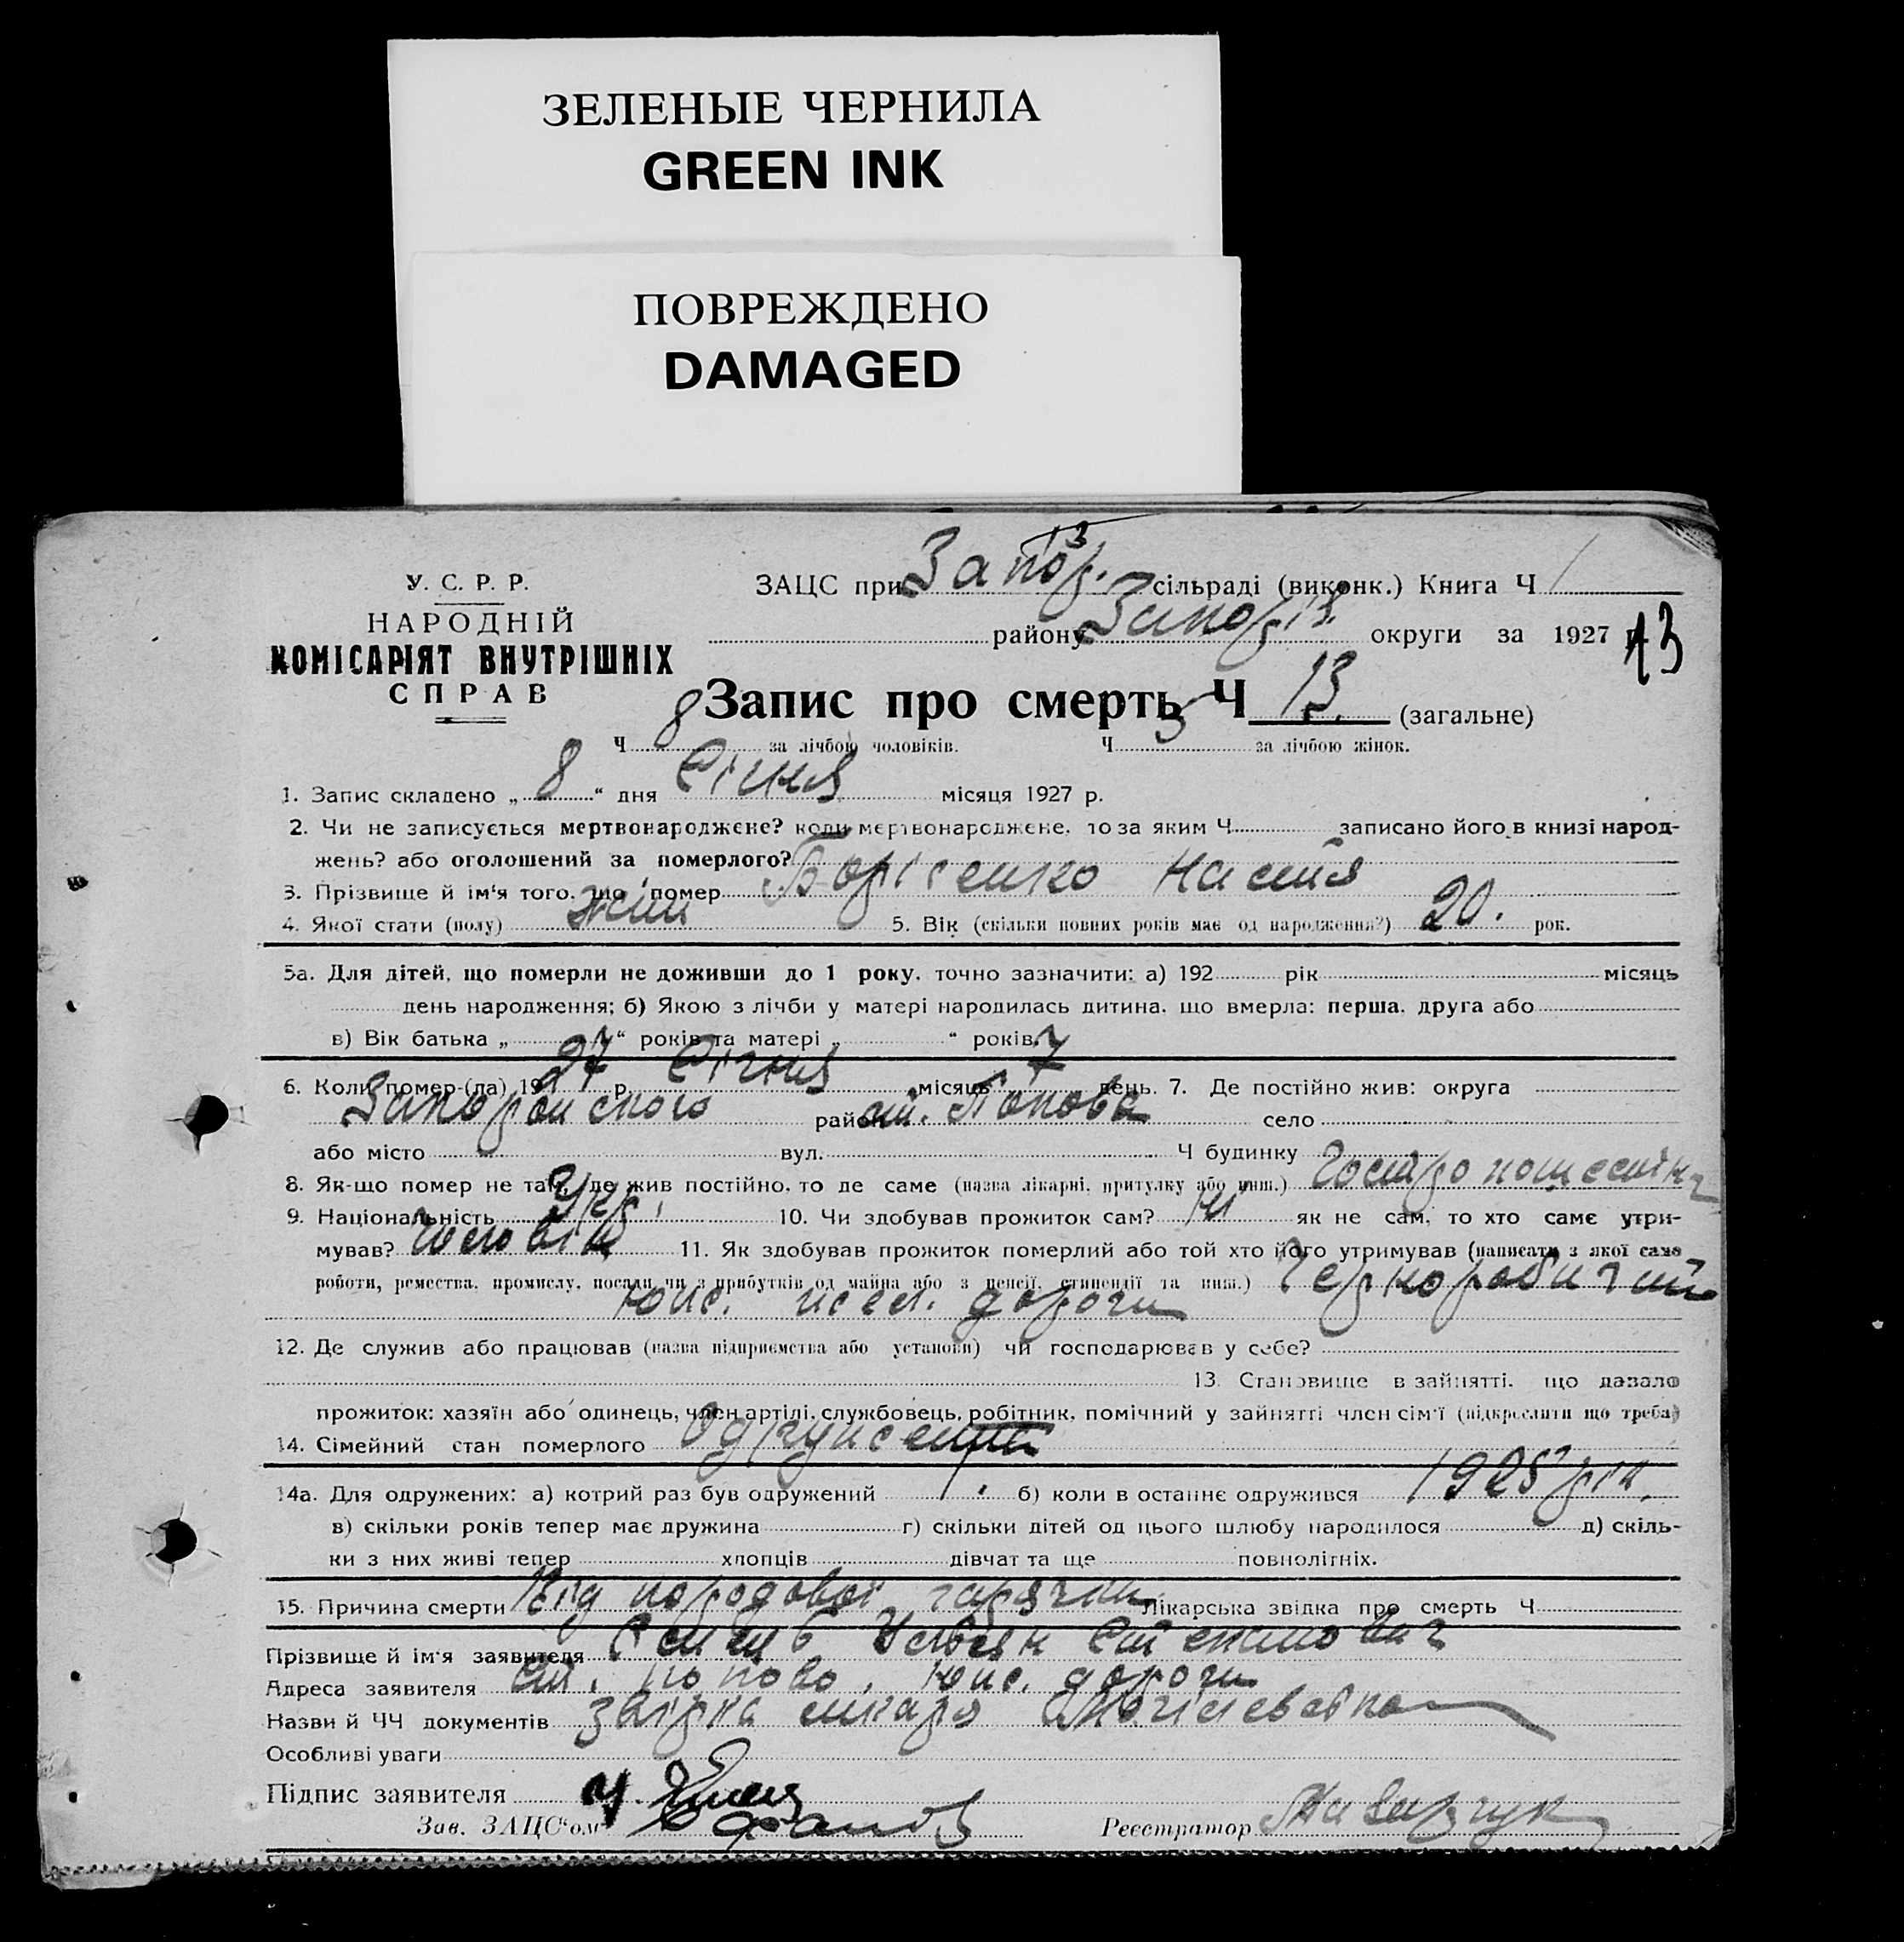 ЗЕЛЕНЫЕ ЧЕРНИЛА
GREEN INK
ПОВРЕЖДЕНО
DAMAGED
У. С. Р. Р.
НАРОДНІЙ
КОМІСАРІЯТ ВНУТРІШНІХ
СПРАВ
13
ЗАЦС при Запор. сільраді (виконк.) Книга Ч 1
району Запоріз. округи за 1927 р.
13
Запис про смерть Ч 13. (загальне)
Ч 8 за лічбою чоловіків. Ч 5 за лічбою жінок.
1. Запис складено „ 8 “ дня Січня місяця 1927 р.
2. Чи не записується мертвонароджене? коли мертвонароджене, то за яким Ч записано його в книзі народ-
жень? або оголошений за померлого?
3. Прізвище й ім'я того, що помер Борісенко Настя
4. Якої стати (полу) жін 5. Вік (скільки повних років має од народження?) 20. рок.
5а. Для дітей, що померли не доживши до 1 року, точно зазначити: а) 192 рік місяць
день народження; б) Якою з лічби у матері народилась дитина, що вмерла: перша, друга або
в) Вік батька „ “ років та матері „ “ років.
6. Коли помер-(ла) 19 27 р. Січня місяць 7 день. 7. Де постійно жив: округа
Запорізького район ст. Попово село
або місто вул. Ч будинку
8. Як-що помер не там, де жив постійно, то де саме (назва лікарні, притулку або инш.)
9. Національність Укр. 10. Чи здобував прожиток сам? Ні як не сам, то хто саме утри-
мував? Чоловік 11. Як здобував прожиток померлий або той хто його утримував (написати з якої саме
роботи, ремества, промислу, посади чи з прибутків од майна або з пенсії, стипендії та инш.) Чернороб
Юж. жел. дороги
12. Де служив або працював (назва підприємства або установи) чи господарював у себе?
13. Становище в зайнятті, що давало
прожиток: хазяїн або одинець, член артілі, службовець, робітник, помічний у зайнятті член сім'ї (підкреслити що треба)
14. Сімейний стан померлого Одружена
14а. Для одружених: а) котрий раз був одружений 1. б) коли в останнє одружився 1925 рік.
в) скільки років тепер має дружина г) скільки дітей од цього шлюбу народилося д) скіль-
ки з них живі тепер хлопців дівчат та ще повнолітніх.
15. Причина смерти Від породової гарячки Лікарська звідка про смерть Ч
Прізвище й ім'я заявителя Степанович
Адреса заявителя Ст. Попово, Юж. дороги
Назви й ЧЧ документів звідка лікаря
Особливі уваги
Підпис заявителя
Зав. ЗАЦС'ом Реєстратор